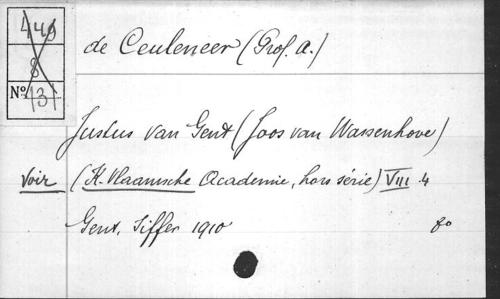 449
8
No 131
de Ceuleneer (Prof. A.)
Justus van Gent (Joos van Wassenhove)
Voir (K. Vlaamsche Academie, hors série) VIII 4
Gent, Siffer 1910 8o